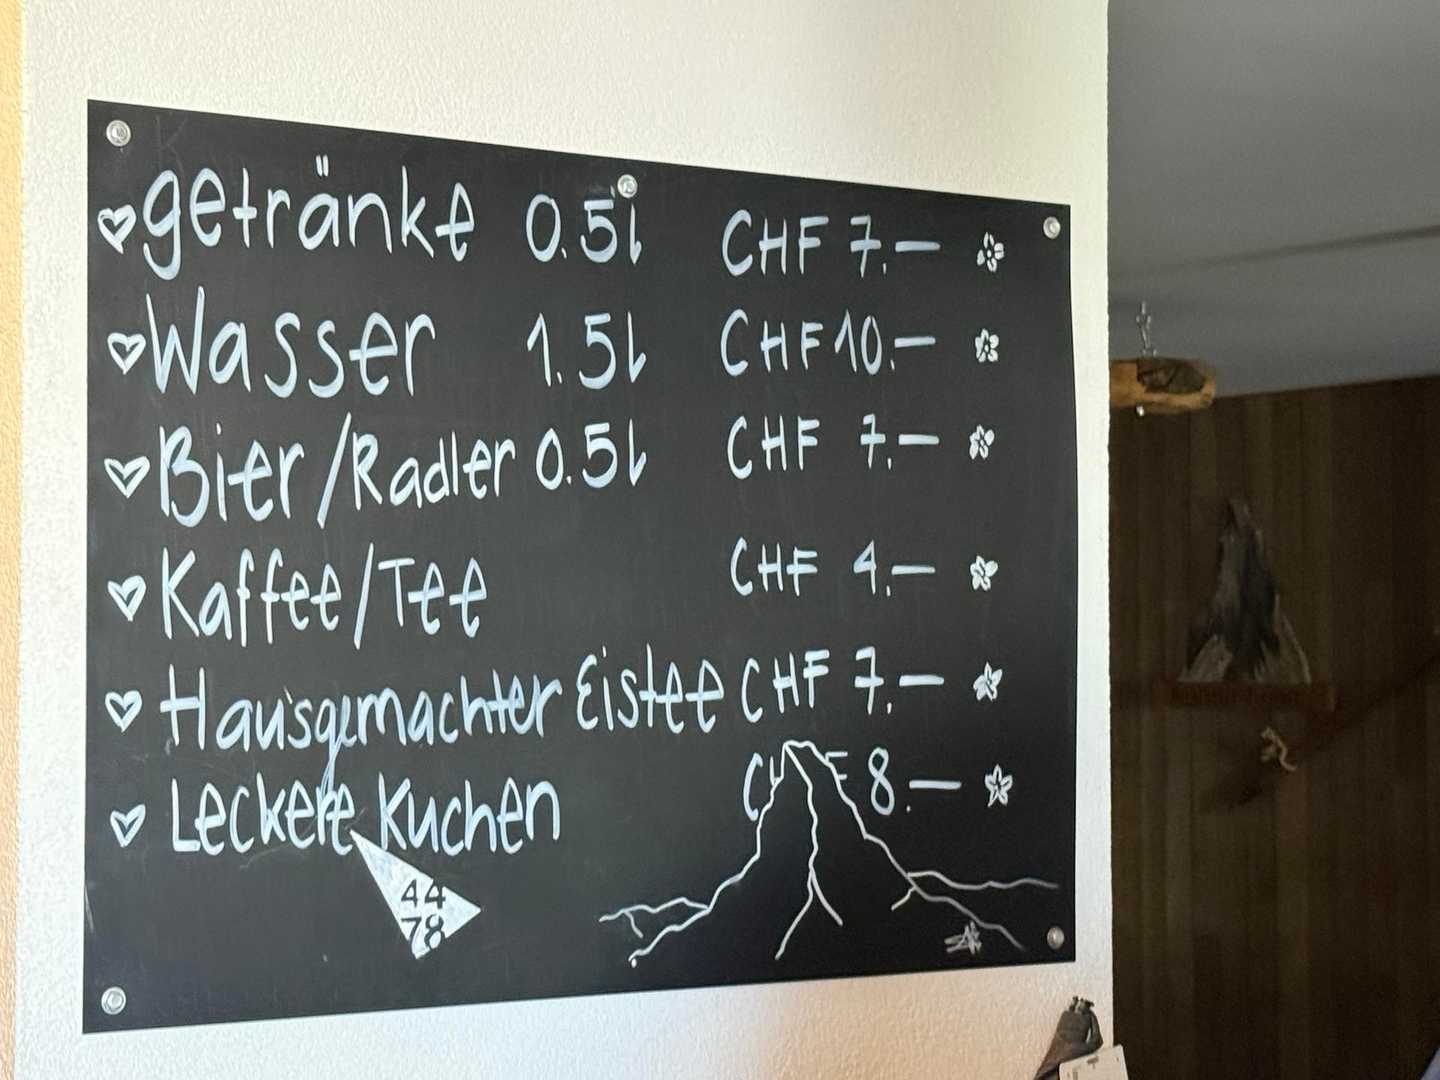 getränke 0.5l CHF 7.—
Wasser 1.5l CHF 10.—
Bier/Radler 0.5l CHF 7.—
Kaffee/Tee CHF 4.—
Hausgemachter Eistee CHF 7.—
Leckere Kuchen CHF 8.—
44
78